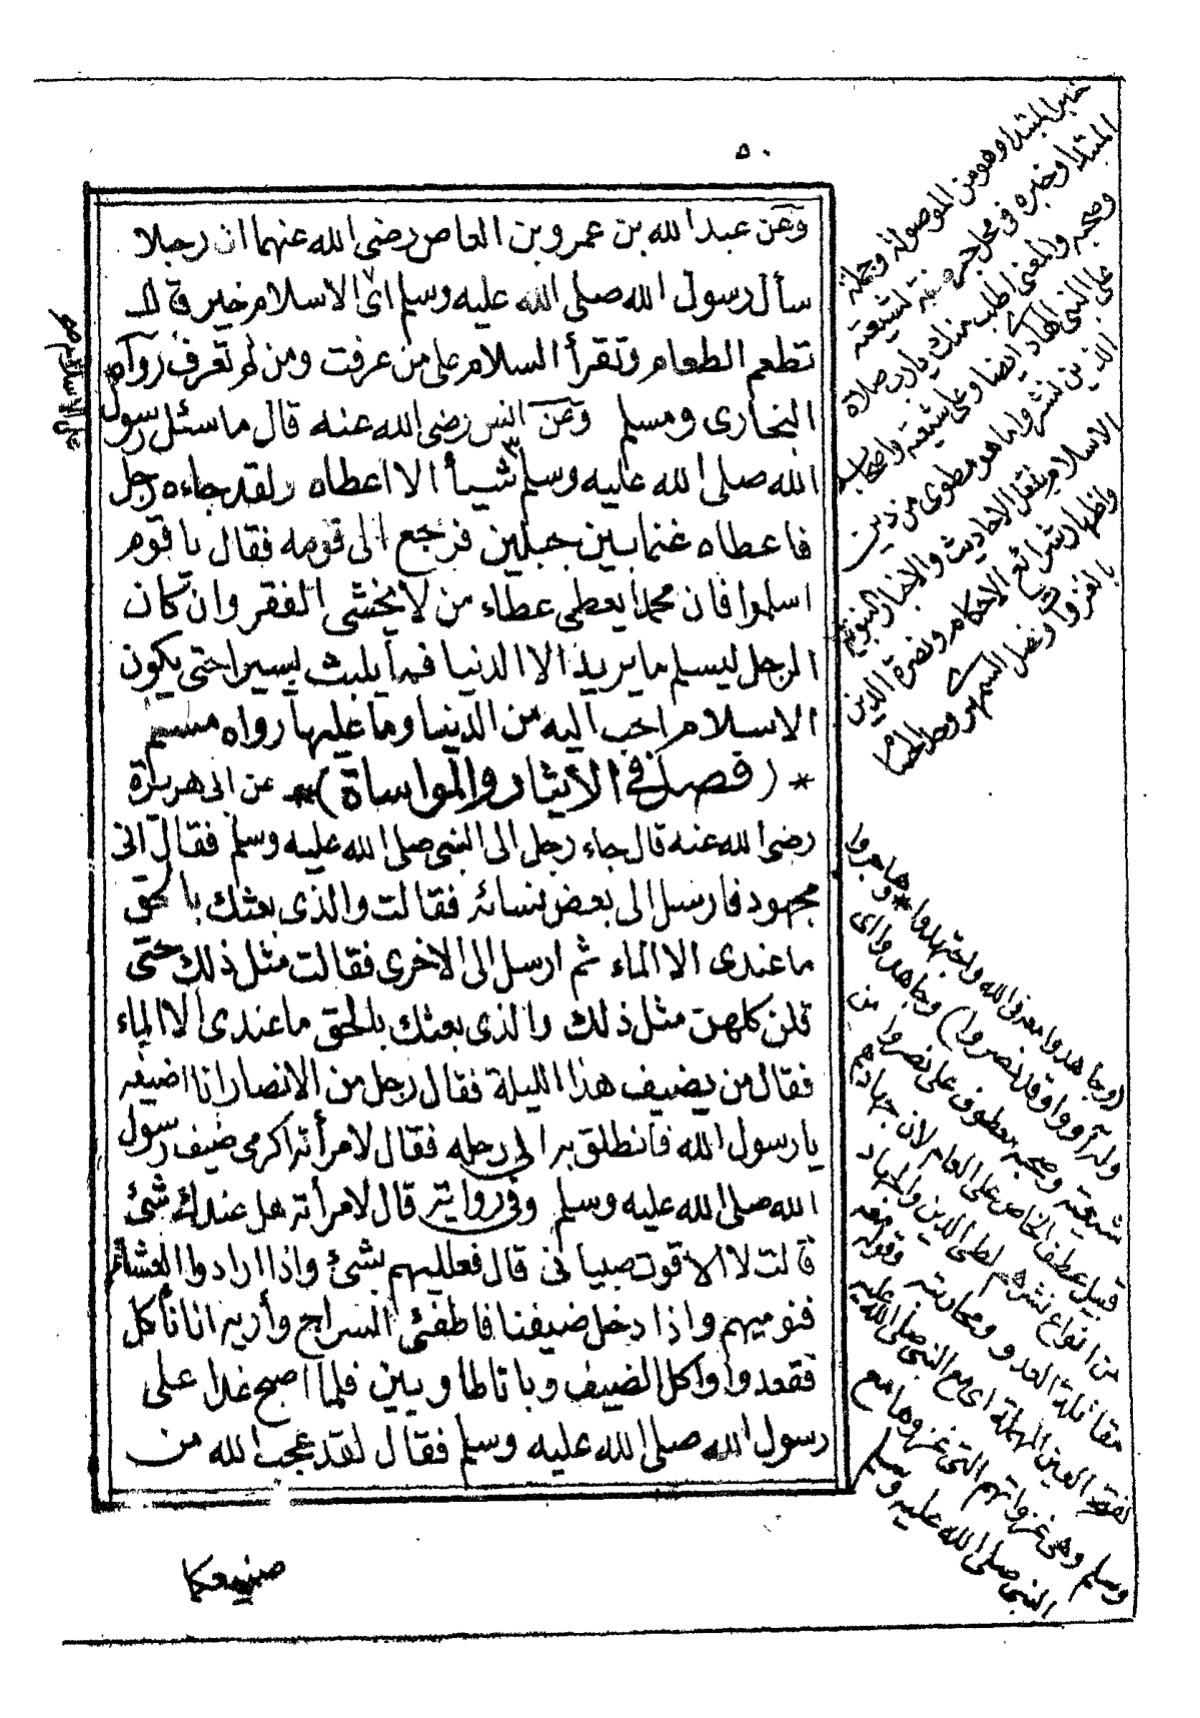 ٥٠
وعن عبد الله بن عمرو بن العاص رضى الله عنهما ان رجلا
سأل رسول الله صلى الله عليه وسلم اى الاسلام خير قال
تطعم الطعام وتقرأ السلام على من عرفت ومن لم تعرف رواه
البخارى ومسلم وعن انس رضى الله عنه قال ما سئل رسول
الله صلى الله عليه وسلم شيأ الا اعطاه ولقد جاءه رجل
فاعطاه غنما بين جبلين فرجع الى قومه فقال يا قوم
اسلموا فان محمدا يعطى عطاء من لا يخشى الفقر وان كان
الرجل ليسلم ما يريد الا الدنيا فما يلبث يسيرا حتى يكون
الاسلام احب اليه من الدنيا وما عليها رواه مسلم
* (فصل فى الأيثار والمواساة) * عن ابى هريرة
رضى الله عنه قال جاء رجل الى النبى صلى الله عليه وسلم فقال انى
مجهود فارسل الى بعض نسائه فقالت والذى بعثك بالحق
ما عندى الا الماء ثم ارسل الى الاخرى فقالت مثل ذلك حتى
قلن كلهن مثل ذلك والذى بعثك بالحق ما عندى الا الماء
فقال من يضيف هذا الليلة فقال رجل من الانصار انا اضيفه
يا رسول الله فانطلق به الى رحله فقال لامرأته اكرمى ضيف رسول
الله صلى الله عليه وسلم وفى رواية قال لامرأته هل عندك شئ
قالت لا الا قوت صبيانى قال فعلليهم بشئ واذا ارادوا العشاء
فنوميهم واذا دخل ضيفنا فاطفئى السراج وأريه انا نأكل
فقعدوا واكل الضيف وباتا طاويين فلما اصبح غدا على
رسول الله صلى الله عليه وسلم فقال لقد عجب الله من
صنيعكما
خبر المبتدا وهو من الموصولة وجملة
المبتدا وخبره فى محل جر صفة لشيعته
وصحبه والمعنى اطلب منك يا رب صلاة
على النبى الهادى ايضا وعلى شيعته واصحابه
الذين نشروا ما هو مطوى من دين
الاسلام بنقل الاحاديث والاخبار النبوية
واظهار شرائع الاحكام ونصرة الدين
بالغزوا ونصل السمهرى
(وجاهدوا معه فى الله واجتهدوا * وهاجروا
وله آووا وقد نصروا) وجاهدوا اى
شيعته وصحبه معطوف على نصروا من
قبيل عطف الخاص على العام لان جهادهم
من انواع نشرهم لطى الدين والجهاد
مقاتلة العدو ومحاربته وقوله معه
بفتح العين المهملة اى مع النبى صلى الله عليه
وسلم وهى غزواتهم التى غزوها مع
النبى صلى الله عليه وسلم